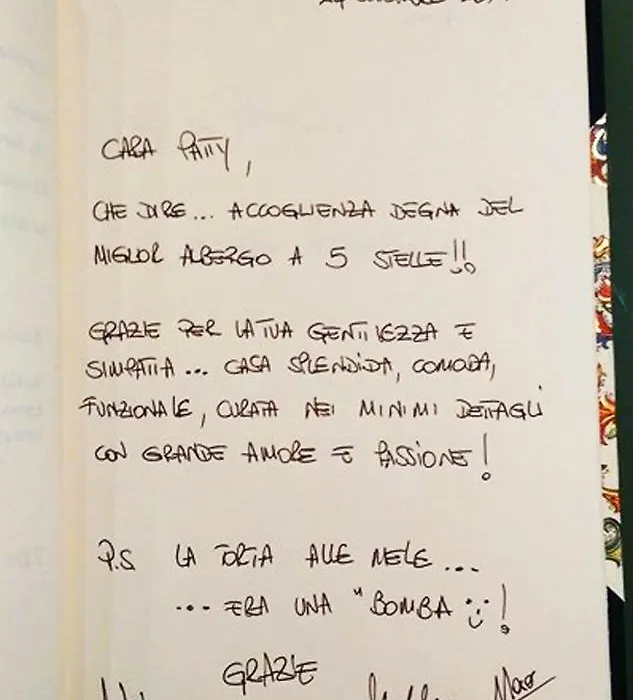 CARA PATTY,
CHE DIRE... ACCOGLIENZA DEGNA DEL
MIGLIOR ALBERGO A 5 STELLE!!
GRAZIE PER LA TUA GENTILEZZA E
SIMPATIA... CASA SPLENDIDA, COMODA,
FUNZIONALE, CURATA NEI MINIMI DETTAGLI
CON GRANDE AMORE E PASSIONE!
P.S LA TORTA ALLE MELE...
... ERA UNA "BOMBA !
GRAZIE